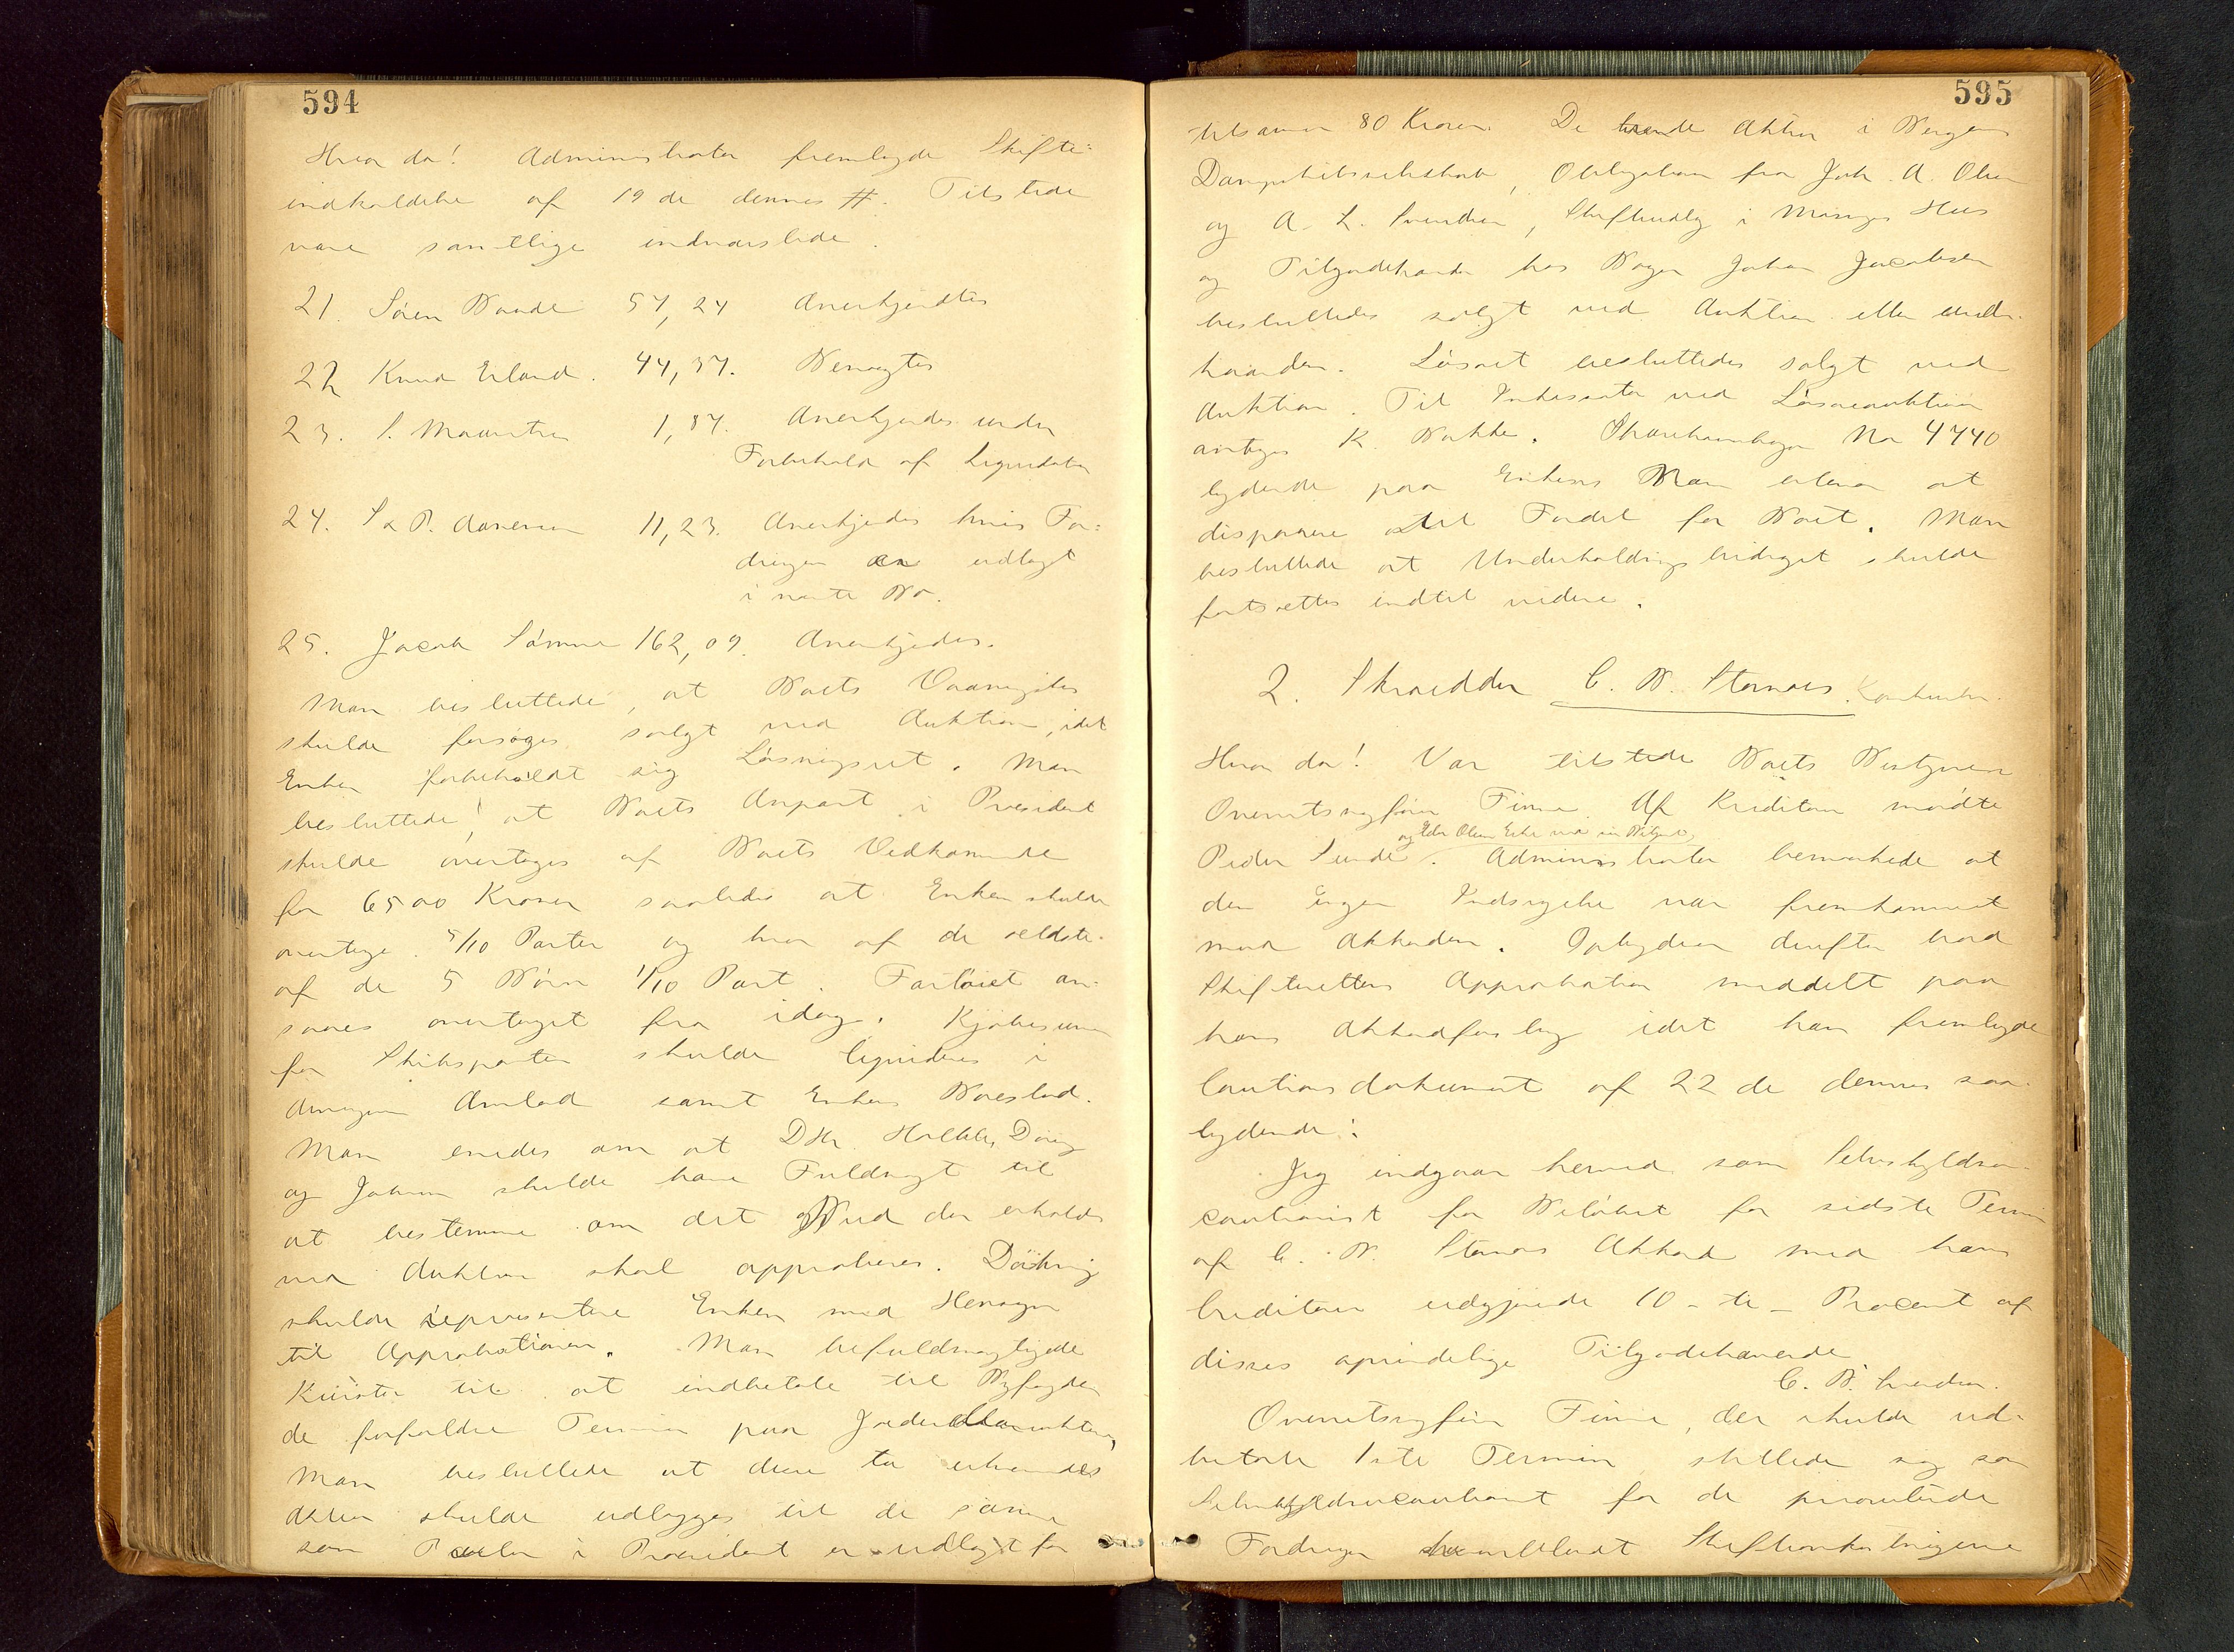 594
Hvor da! Administrator fremlagde Skifte-
indkaldelse af 19de dennes #. Tilstede
vare samtlige indvarslede.
21. Sören Baade 57,24 Anerkjendtes
22 Knud Erland. 44,37. Benegtes
23. S. Mauritzen 1,87. Anerkjendes under
Forbehold af Liqvidation
24. S & P. Aanensen 11,23. Anerkjendes hvis For-
dringen er udlagt
i nærte Bo.
25. Jacob Sömme 162,09. Anerkjendes.
Man besluttede, at Boets Vaaningshus
skulde forsøges solgt ved Auktion, idet
Enken forbeholdt sig Løsningsret. Man
besluttede at Boets Anpart i Præsident
skulde overtages af Boets Vedkommende
for 6500 Kroner saaledes at Enken skulde
overtage 5/10 Parter og hver af de ældste
af de 5 Børn 1/10 Part. Fartøiet an-
saaes overtaget fra idag. Kjøbesummen
for Skibsparten skulde liqvideres i
Arvingernes Arvelod samt Enkens Boeslod.
Man enedes om at DHr. Døring
og Johnsen skulde have Fuldmagt til
at bestemme om det Bud der erholdes
ved Auktion skal approberes. Døhring
skulde repræsentere Enken med Hensyn
til Approbationen. Man befuldmægtigede
til at indbetale til Byfogden
de forfaldne Terminer paa
Man besluttede at disse to
Aktier skulde udlægges til de samme
som Parter i Præsident er udlagt for
595
tilsammen 80 Kroner. De Aktier i Bergens
Dampskibsselskab, Obligation fra Joh. A. Olsen
og A. L. Svendsen, Skifteudlæg i Hus
og Tilgodehavende hos Johan Jacobsen
besluttedes solgt ved Auktion eller under-
haanden. Løsøret besluttedes solgt ved
Auktion. Til Inkassator ved Løsøreauktion
antoges K. Bakke. Sparebankbogen No 4740
lydende paa Enkens Navn erklærer at
disponere til Fordel for Boet. Man
besluttede at Underholdningsbidraget skulde
fortsættes indtil videre.
2. Skrædder C. B. Stornæs. Konkursbo.
Hvor da! Var tilstede Boets Bestyrer
Overretssagfører Finne. Af Kreditorer mødte
og Olsen Enke ved sin
Peder Sunde. Administrator bemærkede at
der Ingen Indsigelse var fremkommet
mod Akkorden. Oplyderen derefter bad
Skifterettens Approbation meddelt paa
hans Akkordforslag idet han fremlagde
Cautionsdokument af 22de dennes saa-
lydende:
Jeg indgaar herved som Selvskyldner-
cautionist for Beløbet for sidste Termin
af C. B. Stornæs Akkord med hans
Creditorer udgjørende 10 - ti - Procent af
disses oprindelige Tilgodehavende
C. B. Svendsen.
Overretssagfører Finne, der skulde ud-
betale 1ste Termin, stillede sig som
Selvskyldnercautionist for de prioriterede
Fordringer Skifteomkostningerne